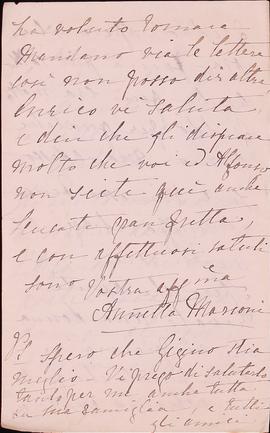 ha voluto tornare
Mandano via le lettere
così non posso dir altro
Enrico vi saluta
e dice che gli dispiace
molto che voi ed Alfonso
non siete qui anche
Scusate gran fretta,
e con affettuosi saluti
sono Vostra affma
Annetta Marconi
PS Spero che Gigino stia
meglio - Vi prego di salutarlo
tanto per me, anche tutta
la sua famiglia, e tutti
gli amici